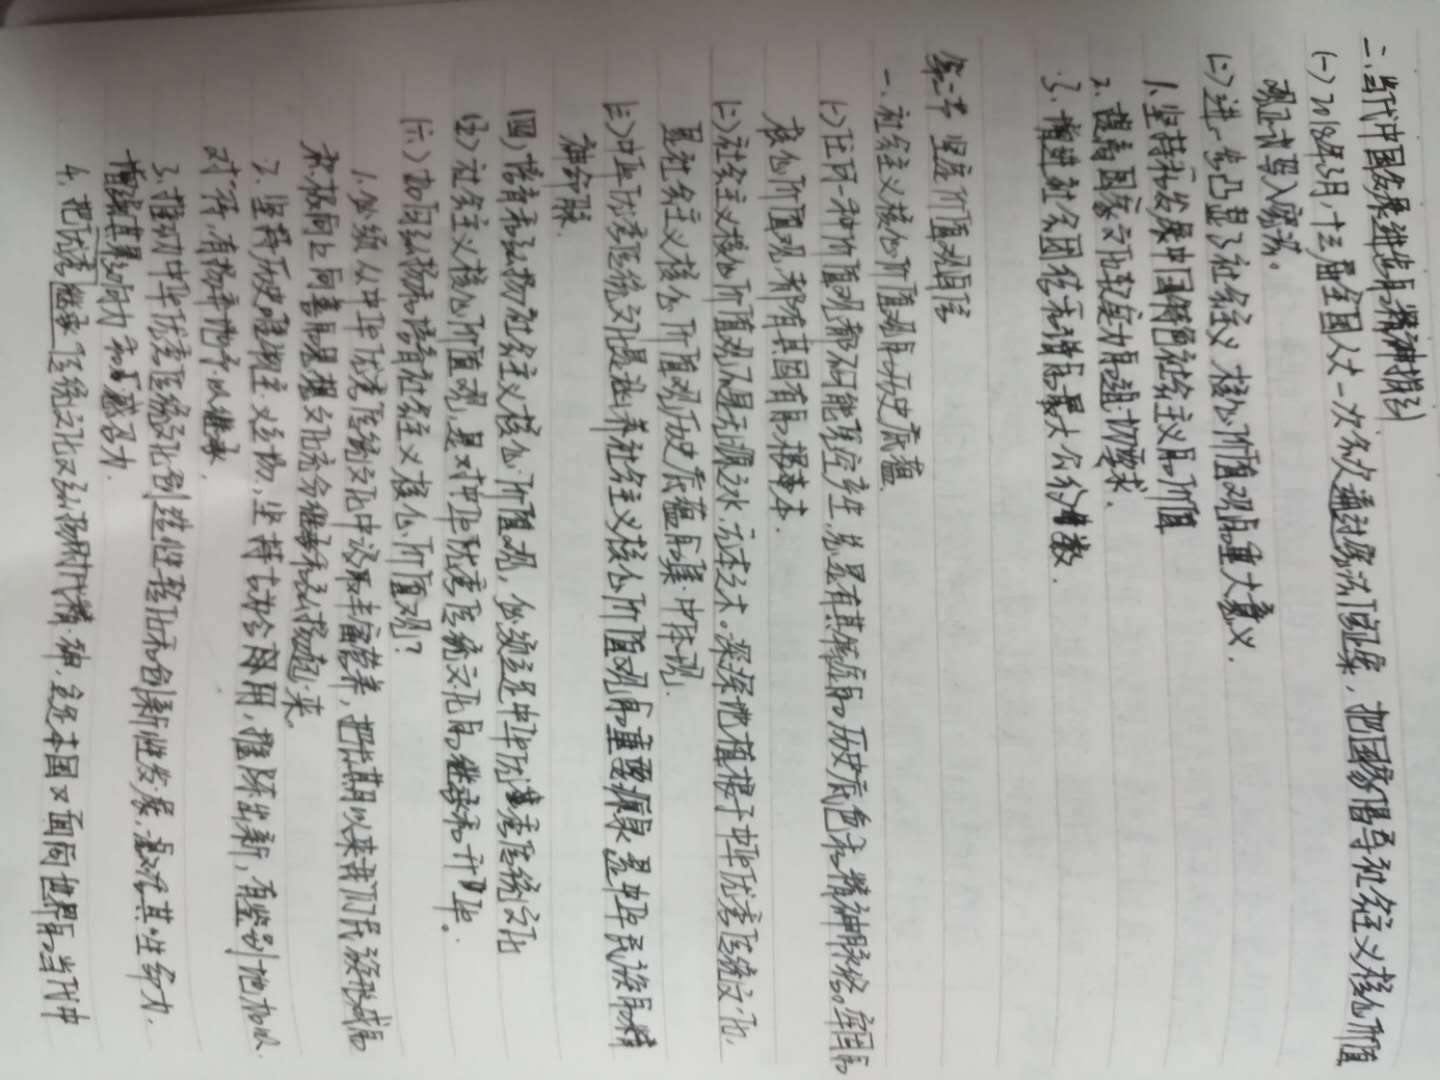 二.当代中国发展进步的精神指引
(一)2018年3月,十三届全国人大一次会议通过宪法修正案,把国家倡导社会主义核心价值
观正式写入宪法。
(二)进一步凸显了社会主义核心价值观的重大意义.
1.坚持和发展中国特色社会主义的价值
2.提高国家文化软实力的迫切要求.
3.增进社会团结和谐的最大公约数.
第二节 坚定价值观自信
一.社会主义核心价值观的历史底蕴
(一)任何一种价值观都不可能凭空产生,总是有其
的历史底色和精神脉络。牢固的
核心价值观,都有其固有的根本.
(二)社会主义核心价值观不是无源之水,无本之木。深深地植根于中华优秀传统文化,
是社会主义核心价值观历史底蕴的集中体现.
(三)中华优秀传统文化是涵养社会主义核心价值观的重要源泉,是中华民族的精
神命脉
(四)培育和弘扬社会主义核心价值观,必须立足中华优秀传统文化
(五)社会主义核心价值观,是对中华优秀传统文化的继承和升华.
(六)如何弘扬和培育社会主义核心价值观?
1.必须从中华优秀传统文化中汲取丰富营养,把长期以来我们民族形成的
积极向上向善的思想文化充分继承和弘扬起来.
2.坚持历史唯物主义立场,坚持古为今用,推陈出新,有鉴别地加以
对待,有扬弃地予以继承.
3.推动中华优秀传统文化创造性转化和创新性发展,激活其生命力.
增强其影响力和感召力.
4.把优秀继承传统文化又弘扬时代精神,立足本国又面向世界的当代中